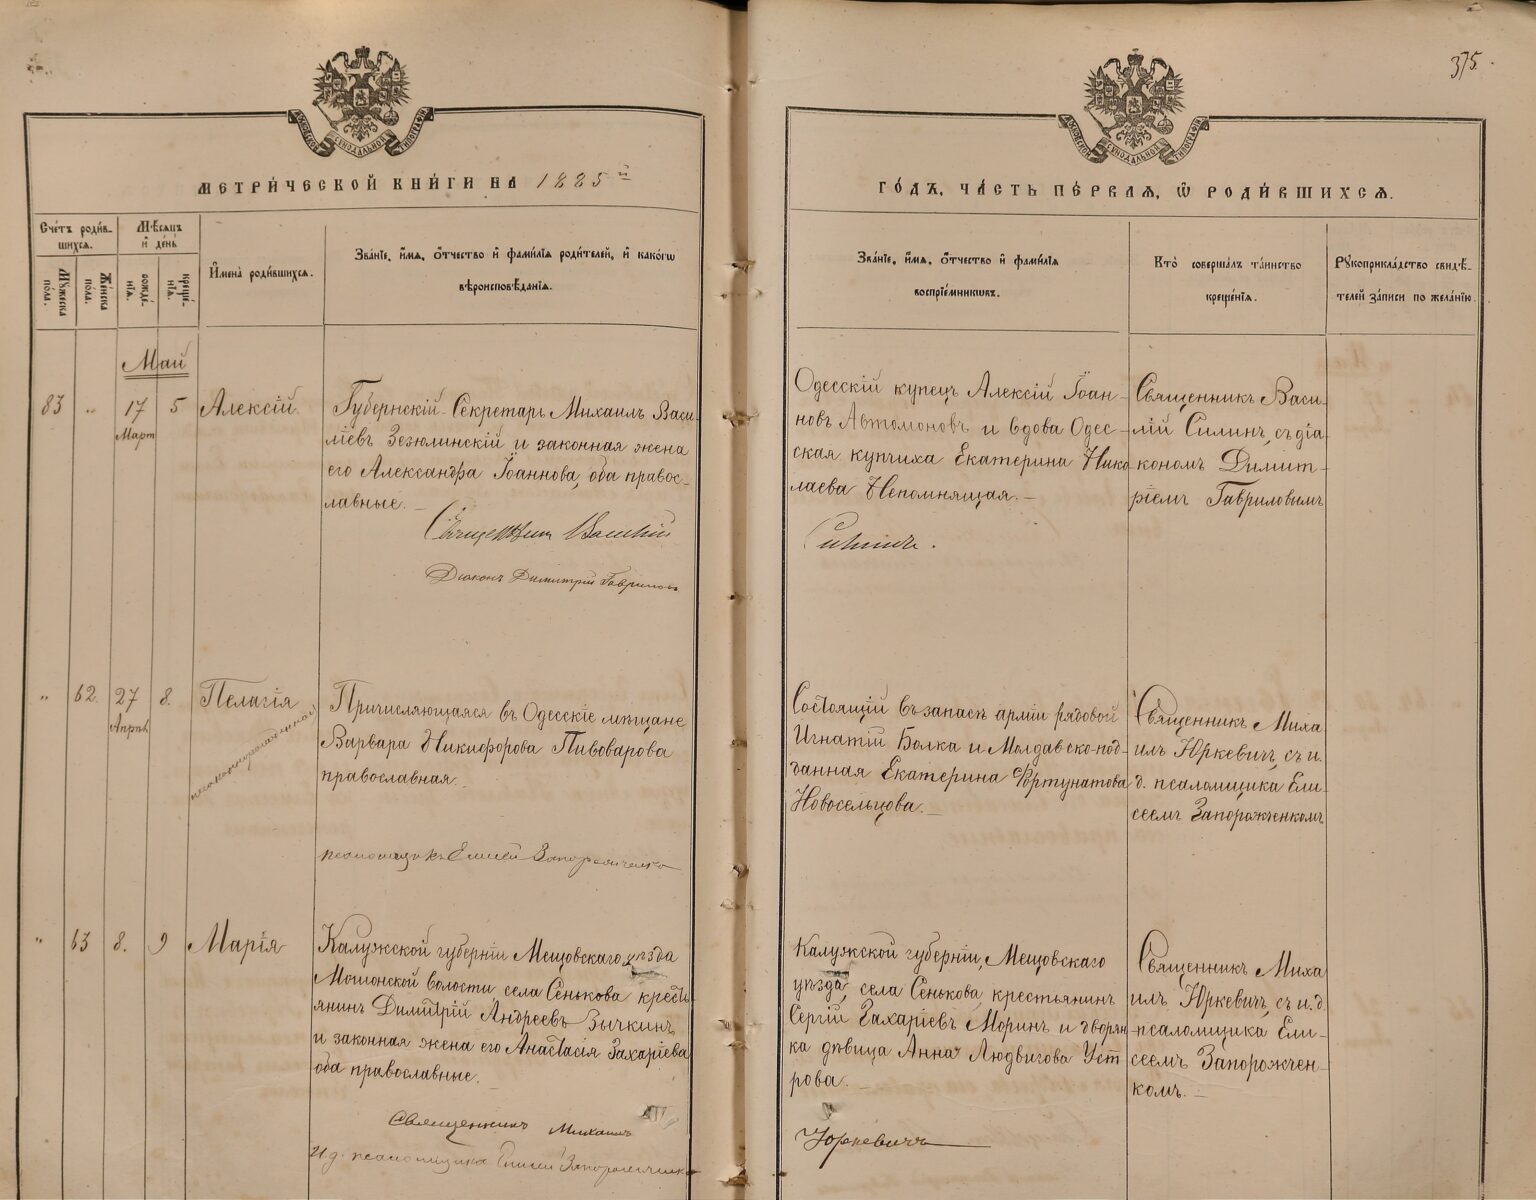 375.
МОСКОВСКОЙ СѴНОДАЛЬНОЙ ТИПОГРАФІИ
МОСКОВСКОЙ СѴНОДАЛЬНОЙ ТИПОГРАФІИ
МЕТРИ́ЧЕСКОЙ КНИ́ГИ НА 1885й
ГО́ДЪ, ЧА́СТЬ ПЕ́РВАѦ, Ѡ РОДИ́ВШИХСѦ.
Сче́тъ роди́в-
шихсѧ.
Мѣ́сѧцъ
и҆ де́нь
Мꙋ́жеска
по́ла.
Же́нска
по́ла.
рожде́-
нїѧ.
креще́-
нїѧ.
И҆мена̀ роди́вшихсѧ.
Зва́нїе, и҆́мѧ, ѻ҆́тчество и҆ фами́лїѧ роди́телей, и҆ како́гѡ
вѣроисповѣ́данїѧ.
Зва́нїе, и҆́мѧ, ѻ҆́тчество и҆ фами́лїѧ
воспрїе́мникѡвъ.
Кто̀ соверша́лъ та́инство
креще́нїѧ.
Рꙋкоприкла́дство свидѣ́-
телей за́писи по жела́нїю.
Май
83 " 17 5
Март
Алексій
Губернскій Секретарь Михаилъ Васи-
ліевъ Зезюлинскій и законная жена
его Александра Іоаннова, оба правос-
лавные.
Священникъ Василій
Діаконъ Димитрій Гавриловъ
Одесскій купецъ Алексій Іоан-
новъ Автомоновъ и вдова Одес-
ская купчиха Екатерина Нико-
лаева Непомнящая.
Силинъ.
Священникъ Васи-
лій Силинъ, съ діа-
кономъ Димит-
ріемъ Гавриловымъ
" 62. 27 8.
Апрѣл.
Пелагія
незаконнорожденная
Причисляющаяся въ Одесскіе мѣщане
Варвара Никифорова Пивоварова
православная.
псаломщикъ Елисей Запорожченко
Состоящій въ запасѣ арміи рядовой
Игнатій Болка и Молдавско-под-
данная Екатерина Фортунатова
Новосельцова.
Священникъ Миха
илъ Юркевичъ, съ и.
д. псаломщика Ели-
сеемъ Запорожченкомъ
" 63 8. 9
Марія
Калужской губерніи Мещовскаго уѣзда
Мошонской волости села Сенькова кресть
янинъ Димитрій Андреевъ Зичкинъ
и законная жена его Анастасія Захаріева
оба православные.
Священникъ Михаилъ
И. д. псаломщика Елисей Запорожченко
Калужской губерніи, Мещовскаго
уѣзда, села Сенькова, крестьянинъ
Сергій Захаріевъ Моринъ и дворян
ка дѣвица Анна Людвигова Уст
рова.
Юркевичъ
Священникъ Миха
илъ Юркевичъ, съ и. д.
псаломщика Ели-
сеемъ Запорожчен-
комъ.